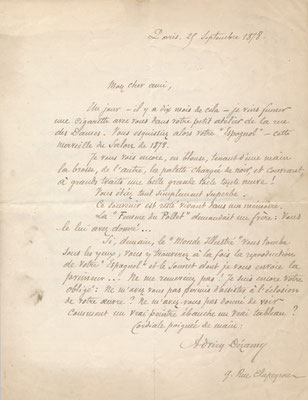 Paris, 25 Septembre 1878.
Mon cher ami,
Un jour – il y a dix mois de cela – je vins fumer
une cigarette avec vous dans votre petit atelier de la rue
des Dames. Vous esquissiez alors votre "Espagnol" – cette
merveille du Salon de 1878.
Je vous vois encore, en blouse, tenant d'une main
la brosse, de l'autre, la palette chargée de noir, et couvrant
à grands traits une belle grande toile toute neuve !
Vous étiez tout simplement superbe.
Ce souvenir est resté vivant dans ma mémoire.
La "Femme du Pollet" demandait un frère : Vous
le lui avez donné...
Si, demain, le "Monde Illustré" vous tombe
sous les yeux, vous y trouverez à la fois la reproduction
de votre "Espagnol" et le Sonnet dont je vous envoie la
primeur... Ne me remerciez pas ! Je suis encore votre
obligé : Ne m'avez vous pas permis d'assister à l'éclosion
de votre œuvre ? Ne m'avez vous pas donné de voir
comment un vrai peintre ébauche un vrai tableau ?
Cordiale poignée de main,
Adrien Dézamy
9, Rue Clapeyron